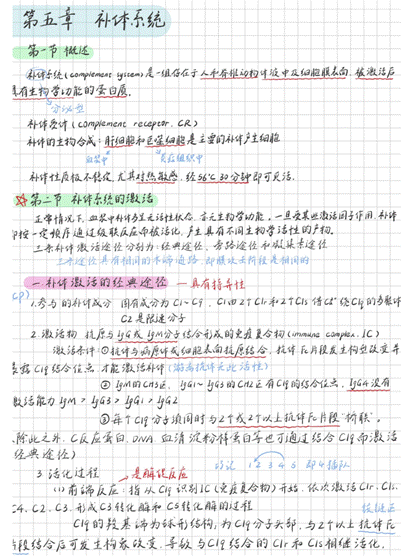 第五章 补体系统
第一节 概述
补体系统(complement system)是一组存在于人和脊椎动物体液中及细胞膜表面,被激活后
具有生物学功能的蛋白质。
补体受体(complement receptor, CR)
补体的生物合成:肝细胞和巨噬细胞是主要的补体产生细胞
血浆中 炎症组织中
补体性质极不稳定,尤其对热敏感,经56℃30分钟即可灭活。
第二节 补体系统的激活
正常情况下,血浆中补体多呈无活性状态,当无生物学功能。一旦受某些激活因子作用,补体
即按一定顺序通过级联反应而被活化,产生具有不同生物学活性的产物。
三条补体激活途径分别为:经典途径、旁路途径和凝集素途径
三条途径具有相同的末端通路,即膜攻击阶段是相同的
一.补体激活的经典途径 —具有指导性
CP)
1.参与的补体成分 固有成分为C1~C9、C1由2个C1r和2个C1s借Ca²⁺绕C1q的多聚体
C2是限速分子
2.激活物 抗原与IgG或IgM分子结合形成的免疫复合物(immune complex, IC)
激活条件:①抗体与病原体或细胞表面抗原结合,抗体Fc片段发生构型改变并
暴露C1q结合位点,才能激活补体(游离抗体无此活性)
②IgM的CH3区、IgG1~IgG3的CH2区有C1q的结合位点,IgG4没有
激活能力 IgM>IgG3>IgG1>IgG2
③每个C1q分子须同时与2个或2个以上抗体Fc片段“桥联”。
(除此之外,C反应蛋白、DNA、血清淀粉样蛋白等也可通过结合C1q而激活
经典途径)
3.活化过程 速记 1 2 3 4 5 即4插队
→是酶促反应
(1)前端反应:指从C1q识别IC(免疫复合物)开始,依次激活C1r、C1s、
C4、C2、C3,形成C3转化酶和C5转化酶的过程
C1q的羧基端为球形结构,为C1q分子头部,与2个以上抗体Fc
片段结合后可发生构象改变,导致与C1q结合的C1r和C1s相继活化,